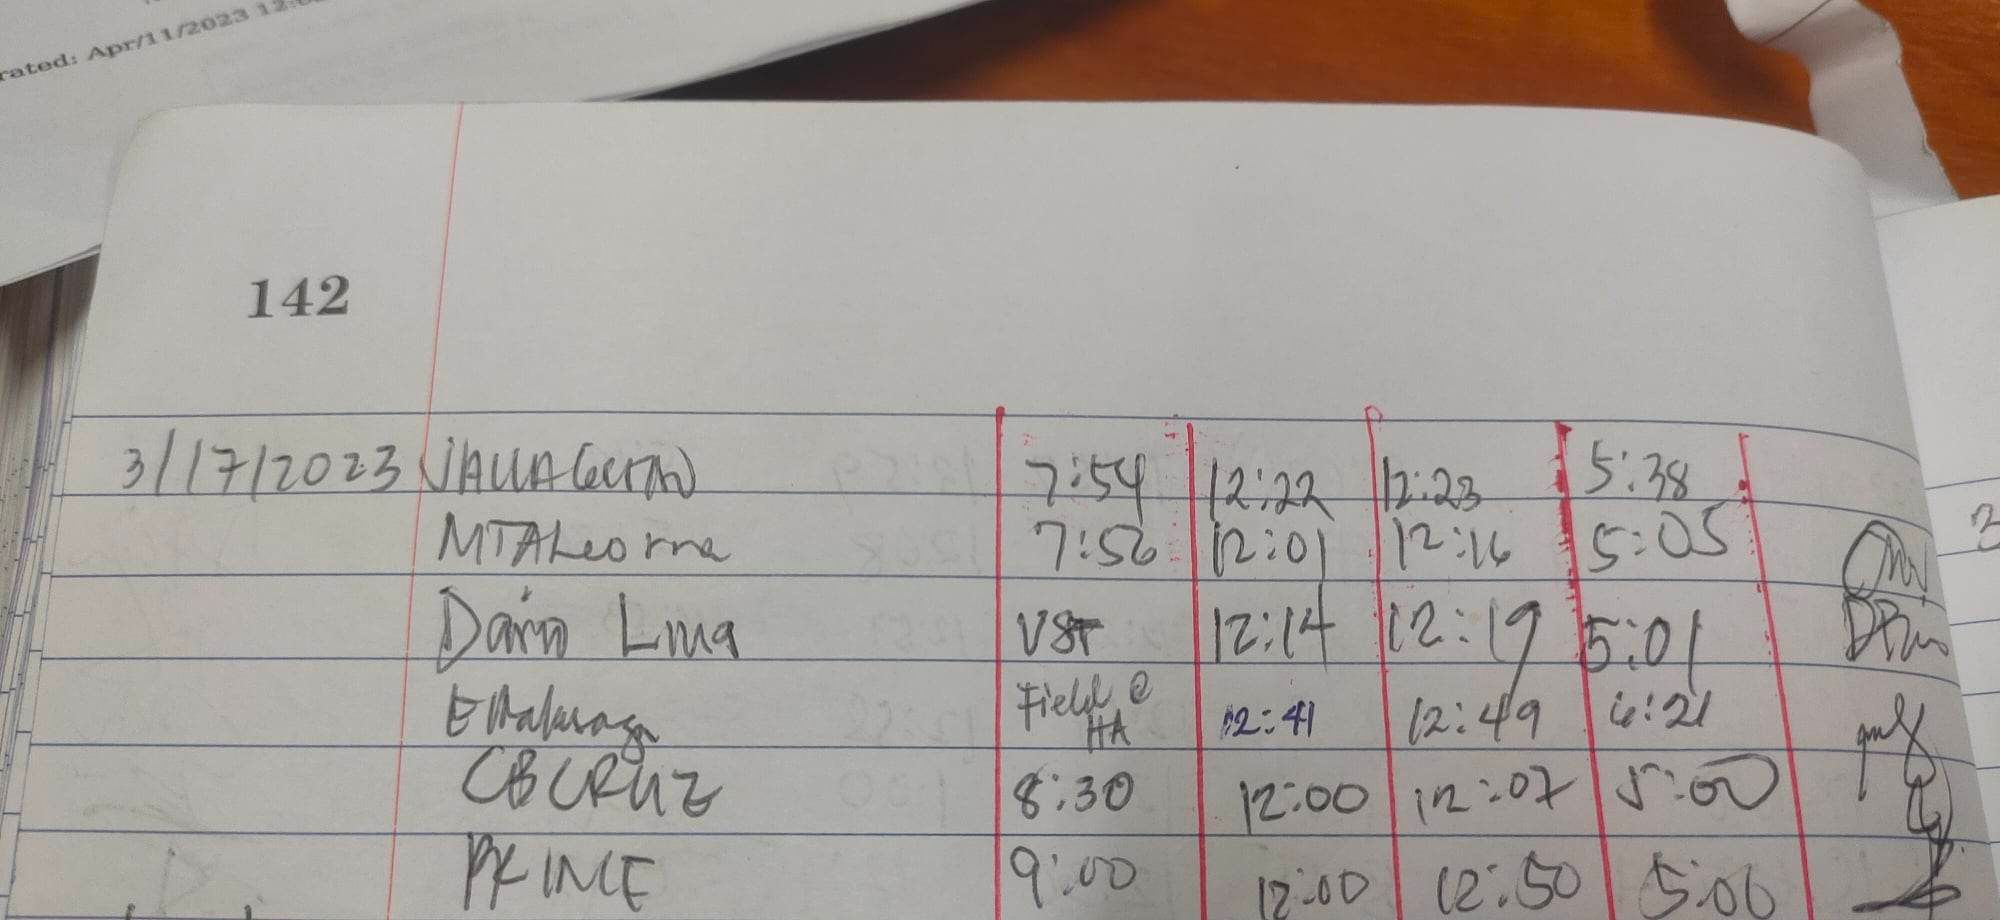 rated: Apr/11/2023 12:
142
3/17/2023 7:54 12:22 12:23 5:38
MTALeorna 7:56 12:01 12:16 5:05
Dario Lina VST 12:14 12:19 5:01
Field @ HA 12:41 12:49 6:21
CBCRUZ 8:30 12:00 12:07 5:00
PRINCE 9:00 12:00 12:50 5:00